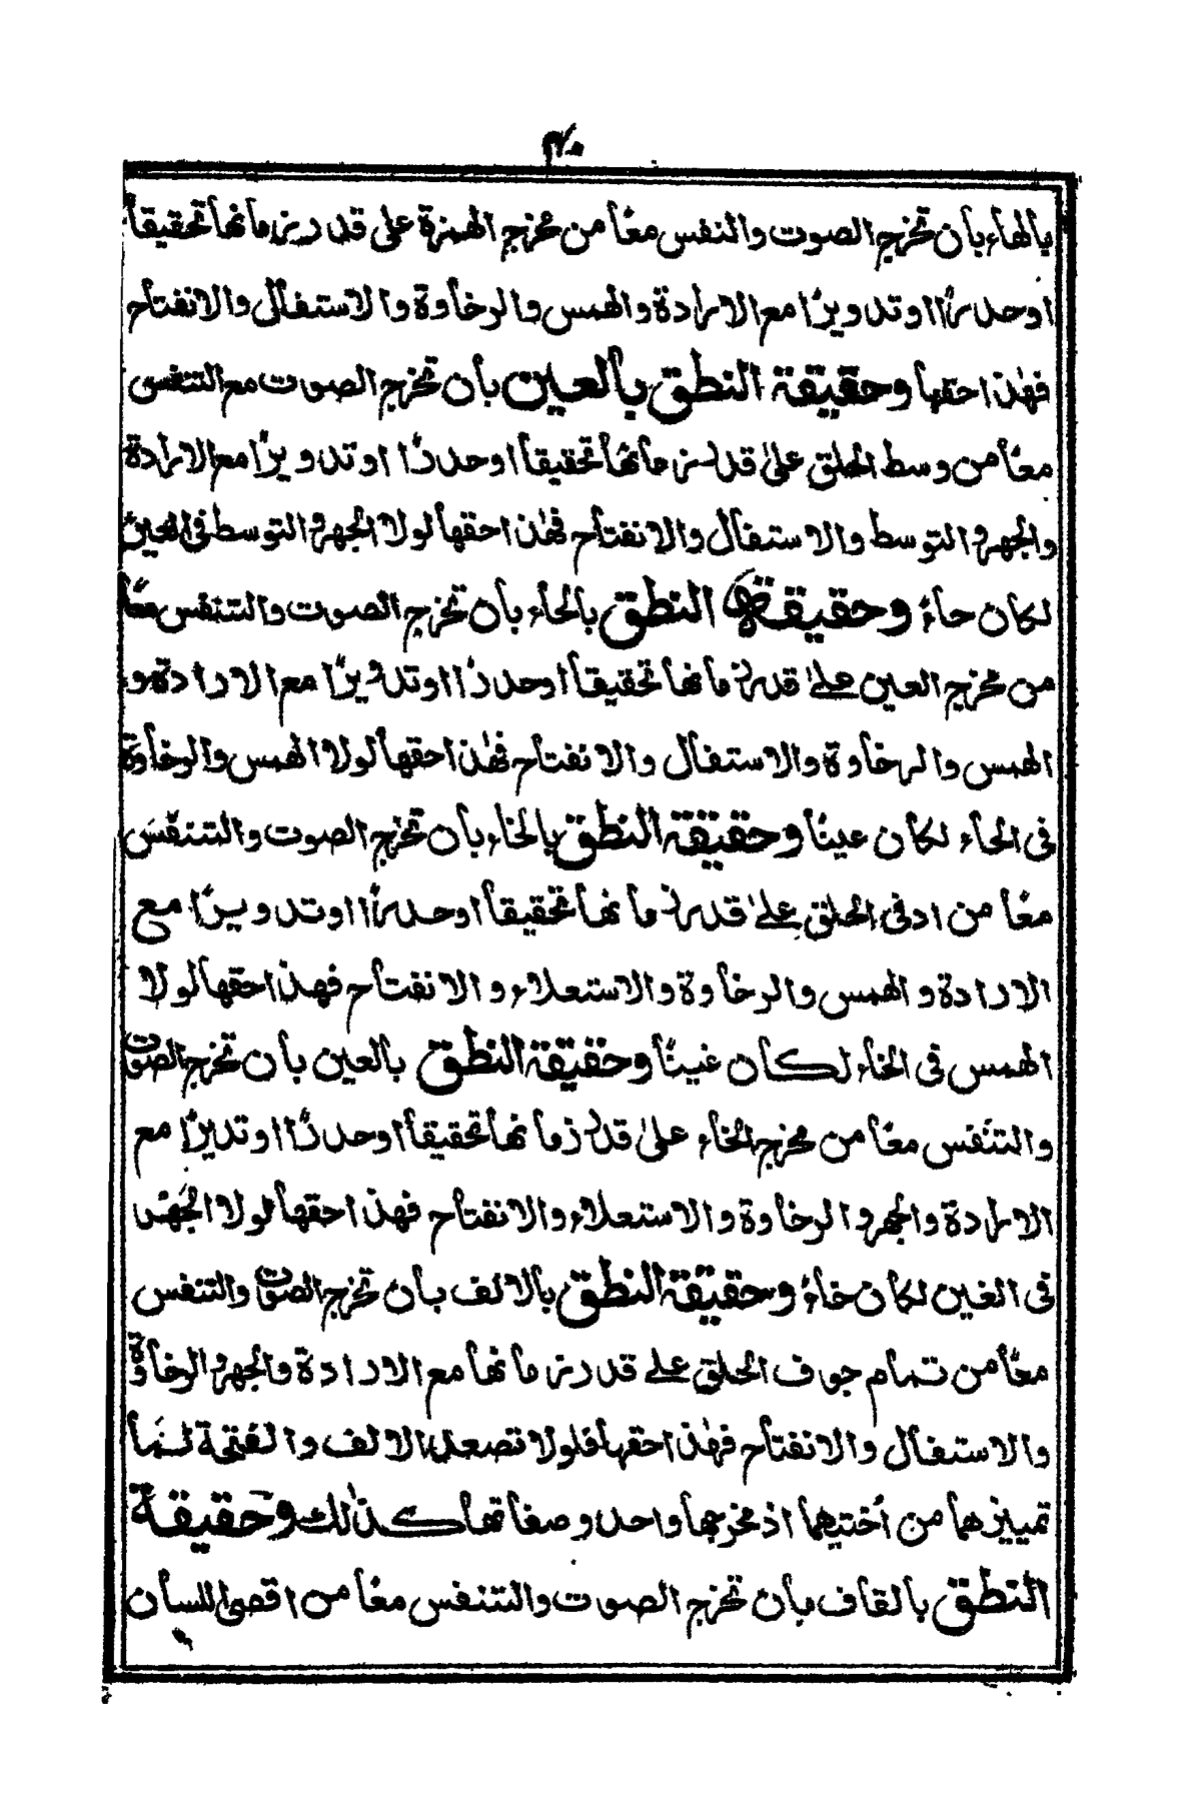 ٣٠
بالهاء بأن تخرج الصوت والنفس معًا من مخرج الهمزة على قدر زمانها تحقيقاً
اوحدرًا اوتدويرًا مع الارادة والهمس والرخاوة والاستفال والانفتاح
فهٰذ احقها وحقيقة النطق بالعين بأن تخرج الصوت مع التنفس
معًا من وسط الحلق علىٰ قدر زمانها تحقيقاً اوحدرًا اوتدويرًا مع الارادة
والجهر والتوسط والاستفال والانفتاح فهٰذ احقها لولا الجهر والتوسط فى العين
لكان حاءً وحقيقة النطق بالحاء بأن تخرج الصوت والتنفس معًا
من مخرج العين علىٰ قدر زمانها تحقيقاً اوحدرًا اوتدويرًا مع الارادة و
الهمس والرخاوة والاستفال والانفتاح فهٰذ احقها لولا الهمس والرخاوة
فى الحاء لكان عينًا وحقيقة النطق بالخاء بأن تخرج الصوت والتنفس
معًا من ادنى الحلق علىٰ قدر زمانها تحقيقاً اوحدرًا اوتدويرًا مع
الارادة والهمس والرخاوة والاستعلاء والانفتاح فهذ احقها لولا
الهمس فى الخاء لكان غينًا وحقيقة النطق بالعين بأن تخرج الصوت
والتنفس معًا من مخرج الخاء علىٰ قدر زمانها تحقيقاً اوحدرًا اوتديرًا مع
الارادة والجهر والرخاوة والاستعلاء والانفتاح فهذ احقها لولا الجهر
فى الغين لكان خاءً وحقيقة النطق بالالف بأن تخرج الصوت والتنفس
معًا من تمام جوف الحلق على قدر زمانها مع الارادة والجهر والرخاوة
والاستفال والانفتاح فهٰذ احقها فلولا تصعد الالف والفتحة لما
تمييزهما من أختيهما اذ مخرجها واحد وصفاتها كذٰلك وحقيقة
النطق بالقاف بأن تخرج الصوت والتنفس معًا من اقصى اللسان